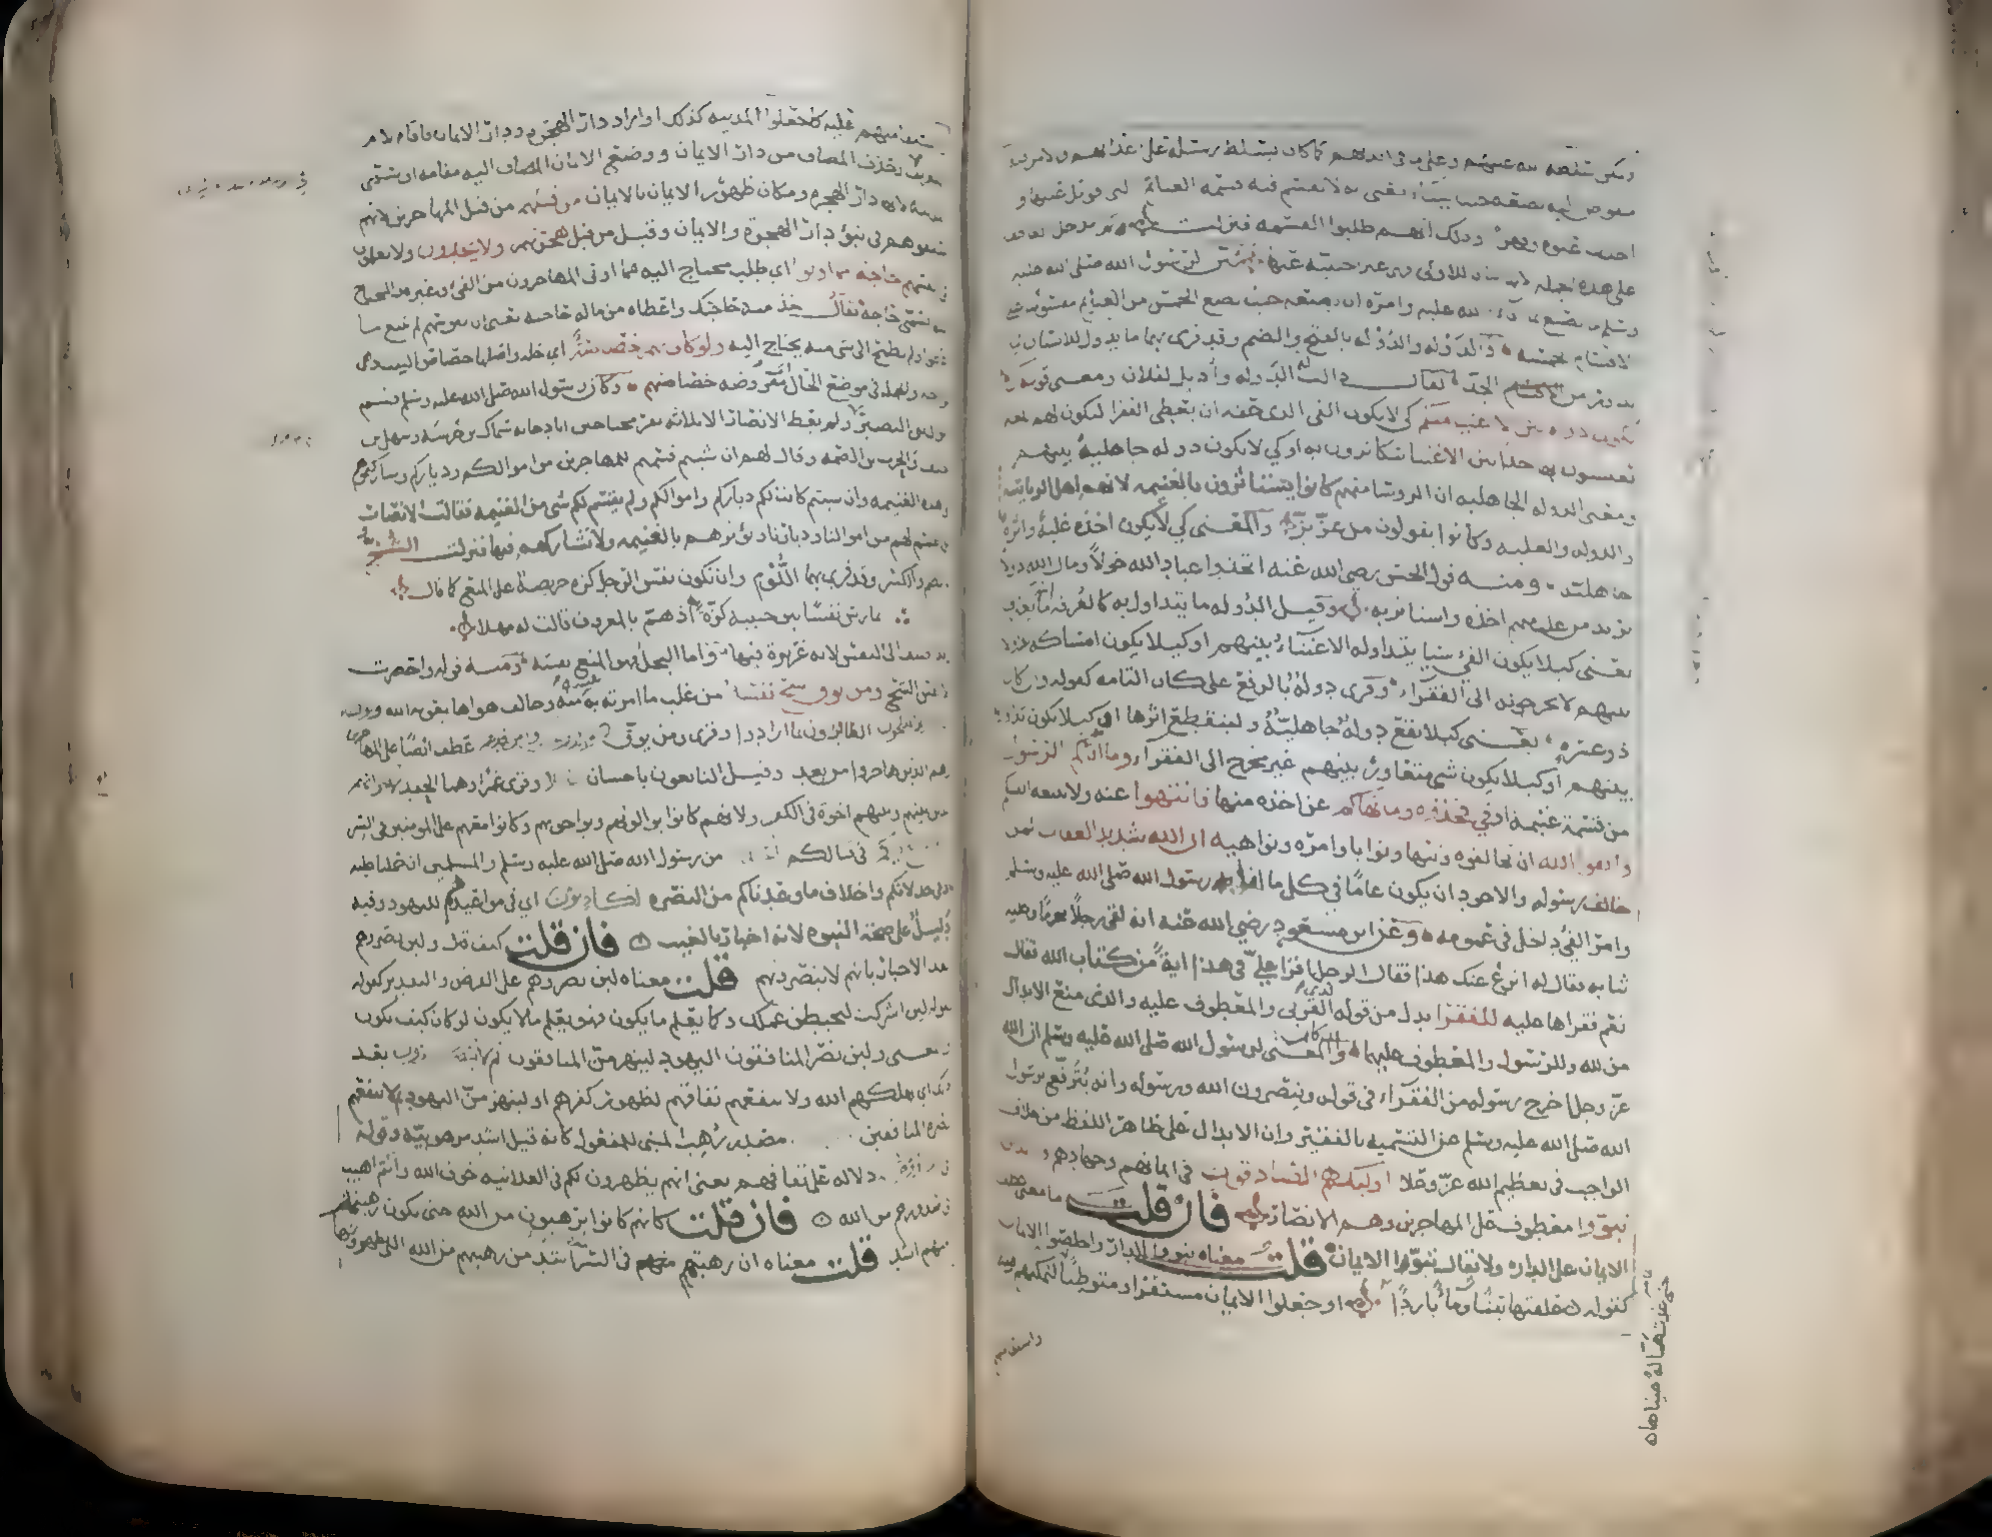 ولكن سلطه الله عليهم وعلى ما في ايديهم كما كان يسلط رسله على اعدائهم والامر فيه
مفوض اليه يضعه حيث يشاء يعني انه لا يقسم قسمة الغنائم التي قوتل عليها و
اخذت عنوة وقهرا وذلك انهم طلبوا القسمه فنزلت لم يدخل العاطف
على هذه الجمله لانها بيان للاولى فهي غير اجنبيه عنها بين لرسول الله صلى الله عليه
وسلم ما يصنع بما افاء الله عليه وامره ان يضعه حيث يضع الخمس من الغنائم مقسوما على
الاقسام الخمسه والدولة والدولة بالفتح والضم وقد قرئ بهما ما يدول للانسان اي
يدور من الجد يقال دالت له الدوله واديل لفلان ومعنى قوله
كيلا يكون دولة بين الاغنياء منكم كي لا يكون الفي الذي حقه ان يعطى الفقرا ليكون لهم بلغه
يعيشون بها جدا بين الاغنياء يتكاثرون به او كي لا يكون دوله جاهلية بينهم
ومعنى الدوله الجاهليه ان الروسا منهم كانوا يستاثرون بالغنيمه لانهم اهل الرياسه
والدوله والغلبه وكانوا يقولون من عز بز والمعنى كي لا يكون اخذه غلبة واثرة
جاهليه ومنه قول الحسن رضي الله عنه اتخذوا عباد الله خولا ومال الله دولا
يريد من غلب منهم اخذه واستاثر به وقيل الدوله ما يتداول به كالغرفه اسم ما يغترف
يعني كيلا يكون الفي شيا يتداوله الاغنياء بينهم او كيلا يكون امساكه تداولا
بينهم لا يخرجونه الى الفقراء وقرئ دولة بالرفع على كان التامه كقوله وان كان
ذو عسرة يعني كيلا تقع دولة جاهلية ولينقطع اثرها او كيلا يكون تداول
بينهم او كيلا يكون شي متعاور بينهم غير مخرج الى الفقراء وما اتاكم الرسول
من قسمة غنيمة او في فخذوه وما نهاكم عن اخذه منها فانتهوا عنه ولا تتبعه انفسكم
واتقوا الله ان تخالفوه وتتهاونوا باوامره ونواهيه ان الله شديد العقاب لمن
خالف رسوله والاجود ان يكون عاما في كل ما اتى به رسول الله صلى الله عليه وسلم
وامر الفي داخل في عمومه وعن ابن مسعود رضي الله عنه انه لقي رجلا محرما وعليه
ثيابه فقال له انزع عنك هذا فقال الرجل اقرا علي في هذا اية من كتاب الله تعالى قال
نعم فقراها عليه للفقرا بدل من قوله لذي القربى والمعطوف عليه والذي منع الابدال
من لله وللرسول والمعطوف عليهما وان كان المعنى لرسول الله صلى الله عليه وسلم ان الله
عز وجل اخرج رسوله من الفقراء في قوله وينصرون الله ورسوله وانه يترفع برسول
الله صلى الله عليه وسلم عن التسميه بالفقير وان الابدال على ظاهر اللفظ من خلاف
الواجب في تعظيم الله عز وعلا اولئك هم الصادقون في ايمانهم وجهادهم والذين
تبوؤا معطوف على المهاجرين وهم الانصار فان قلت ما معنى عطف
الايمان على الدار ولا يقال تبوؤا الايمان قلت معناه تبوؤا الدار واخلصوا الايمان
كقوله علفتها تبنا وماء باردا او جعلوا الايمان مستقرا ومتوطنا لتمكنهم فيه
واستقامتهم
حتى غدت همالة عيناها
عليه كما جعلوا المدينه كذلك او اراد دار الهجرة ودار الايمان فاقام لام
التعريف وحذف المضاف من دار الايمان ووضع المضاف اليه مقامه او سمى
المدينة لانها دار الهجرة ومكان ظهور الايمان بالايمان من قبلهم من قبل المهاجرين لانهم
سبقوهم في تبوؤ دار الهجرة والايمان وقيل من قبل هجرتهم ولا يجدون ولا يعلمون
في انفسهم حاجة مما اوتوا اي طلب محتاج اليه مما اوتي المهاجرون من الفي وغيره والمحتاج
اليه يسمى حاجة يقال خذ منه حاجتك واعطاه من ماله حاجته يعني ان نفوسهم لم تتبع ما
اعطوا ولم تطمح الى شي منه يحتاج اليه ولو كان بهم خصاصة اي خلة واصلها خصاص البيت وهي
فروجه والجمله في موضع الحال اي مفروضه خصاصتهم وكان رسول الله صلى الله عليه وسلم قسم
اموال بني النضير ولم يعط الانصار الا ثلاثة نفر محتاجين ابا دجانه سماك بن خرشه وسهل بن
حنيف والحرث بن الصمه وقال لهم ان شيتم قسمتم للمهاجرين من اموالكم ودياركم وشاركتموهم
في هذه الغنيمه وان شيتم كانت لكم دياركم واموالكم ولم يقسم لكم شي من الغنيمه فقالت الانصار
بل نقسم لهم من اموالنا وديارنا ونؤثرهم بالغنيمه ولا نشاركهم فيها فنزلت الشح
بالضم والكسر وقد قرئ بهما اللؤم وان تكون نفس الرجل كزه حريصة على المنع كما قال
يمارس نفسا بين جنبيه كزة اذا هم بالمعروف قالت له مهلا
وقد اضيف الى النفس لانه غريزة فيها واما البخل فهو المنع نفسه ومنه قوله واحضرت
الانفس الشح ومن يوق شح نفسه من غلب ما امرته به منه وخالف هواها بمعونه الله وتوفيقه
فاولئك هم المفلحون الظافرون بما ارادوا وقرئ ومن يوقّ والذين جاؤا من بعدهم عطف ايضا على المهاجرين
وهم الذين هاجروا من بعد وقيل التابعون باحسان غلا وقرئ غمرا وهما الحقد لاخوانهم
الذين بينهم وبينهم اخوة في الكفر ولانهم كانوا يوالونهم ويواخونهم وكانوا معهم على المومنين في السر
ولا نطيع فيكم في قتالكم احدا من رسول الله صلى الله عليه وسلم والمسلمين ان حملنا عليه
او في خذلانكم واخلاف ما وعدناكم من النصره لكاذبون اي في مواعيدهم لليهود وفيه
دليل على صحة النبوه لانه اخبار بالغيوب فان قلت كيف قيل ولئن نصروهم
بعد الاخبار بانهم لا ينصرونهم قلت معناه لئن نصروهم على الفرض والتقدير كقوله
تعالى لئن اشركت ليحبطن عملك وكما يعلم ما يكون فهو يعلم ما لا يكون لو كان كيف يكون
والمعنى ولئن نصر المنافقون اليهود لينهزمن المنافقون ثم لا ينصرون بعد
ذلك اي يهلكهم الله ولا ينفعهم نفاقهم لظهور كفرهم او لينهزمن اليهود ثم لا ينفعهم
نصرة المنافقين رهبة مصدر رهب المبني للمفعول كانه قيل اشد مرهوبية وقوله
في صدورهم دلالة على نفاقهم يعني انهم يظهرون لكم في العلانيه خوف الله وانتم اهيب
في صدورهم من الله فان قلت كانهم كانوا يرهبون من الله حتى تكون رهبتهم
منهم اشد قلت معناه ان رهبتهم في السر منكم اشد من رهبتهم من الله التي يظهرونها